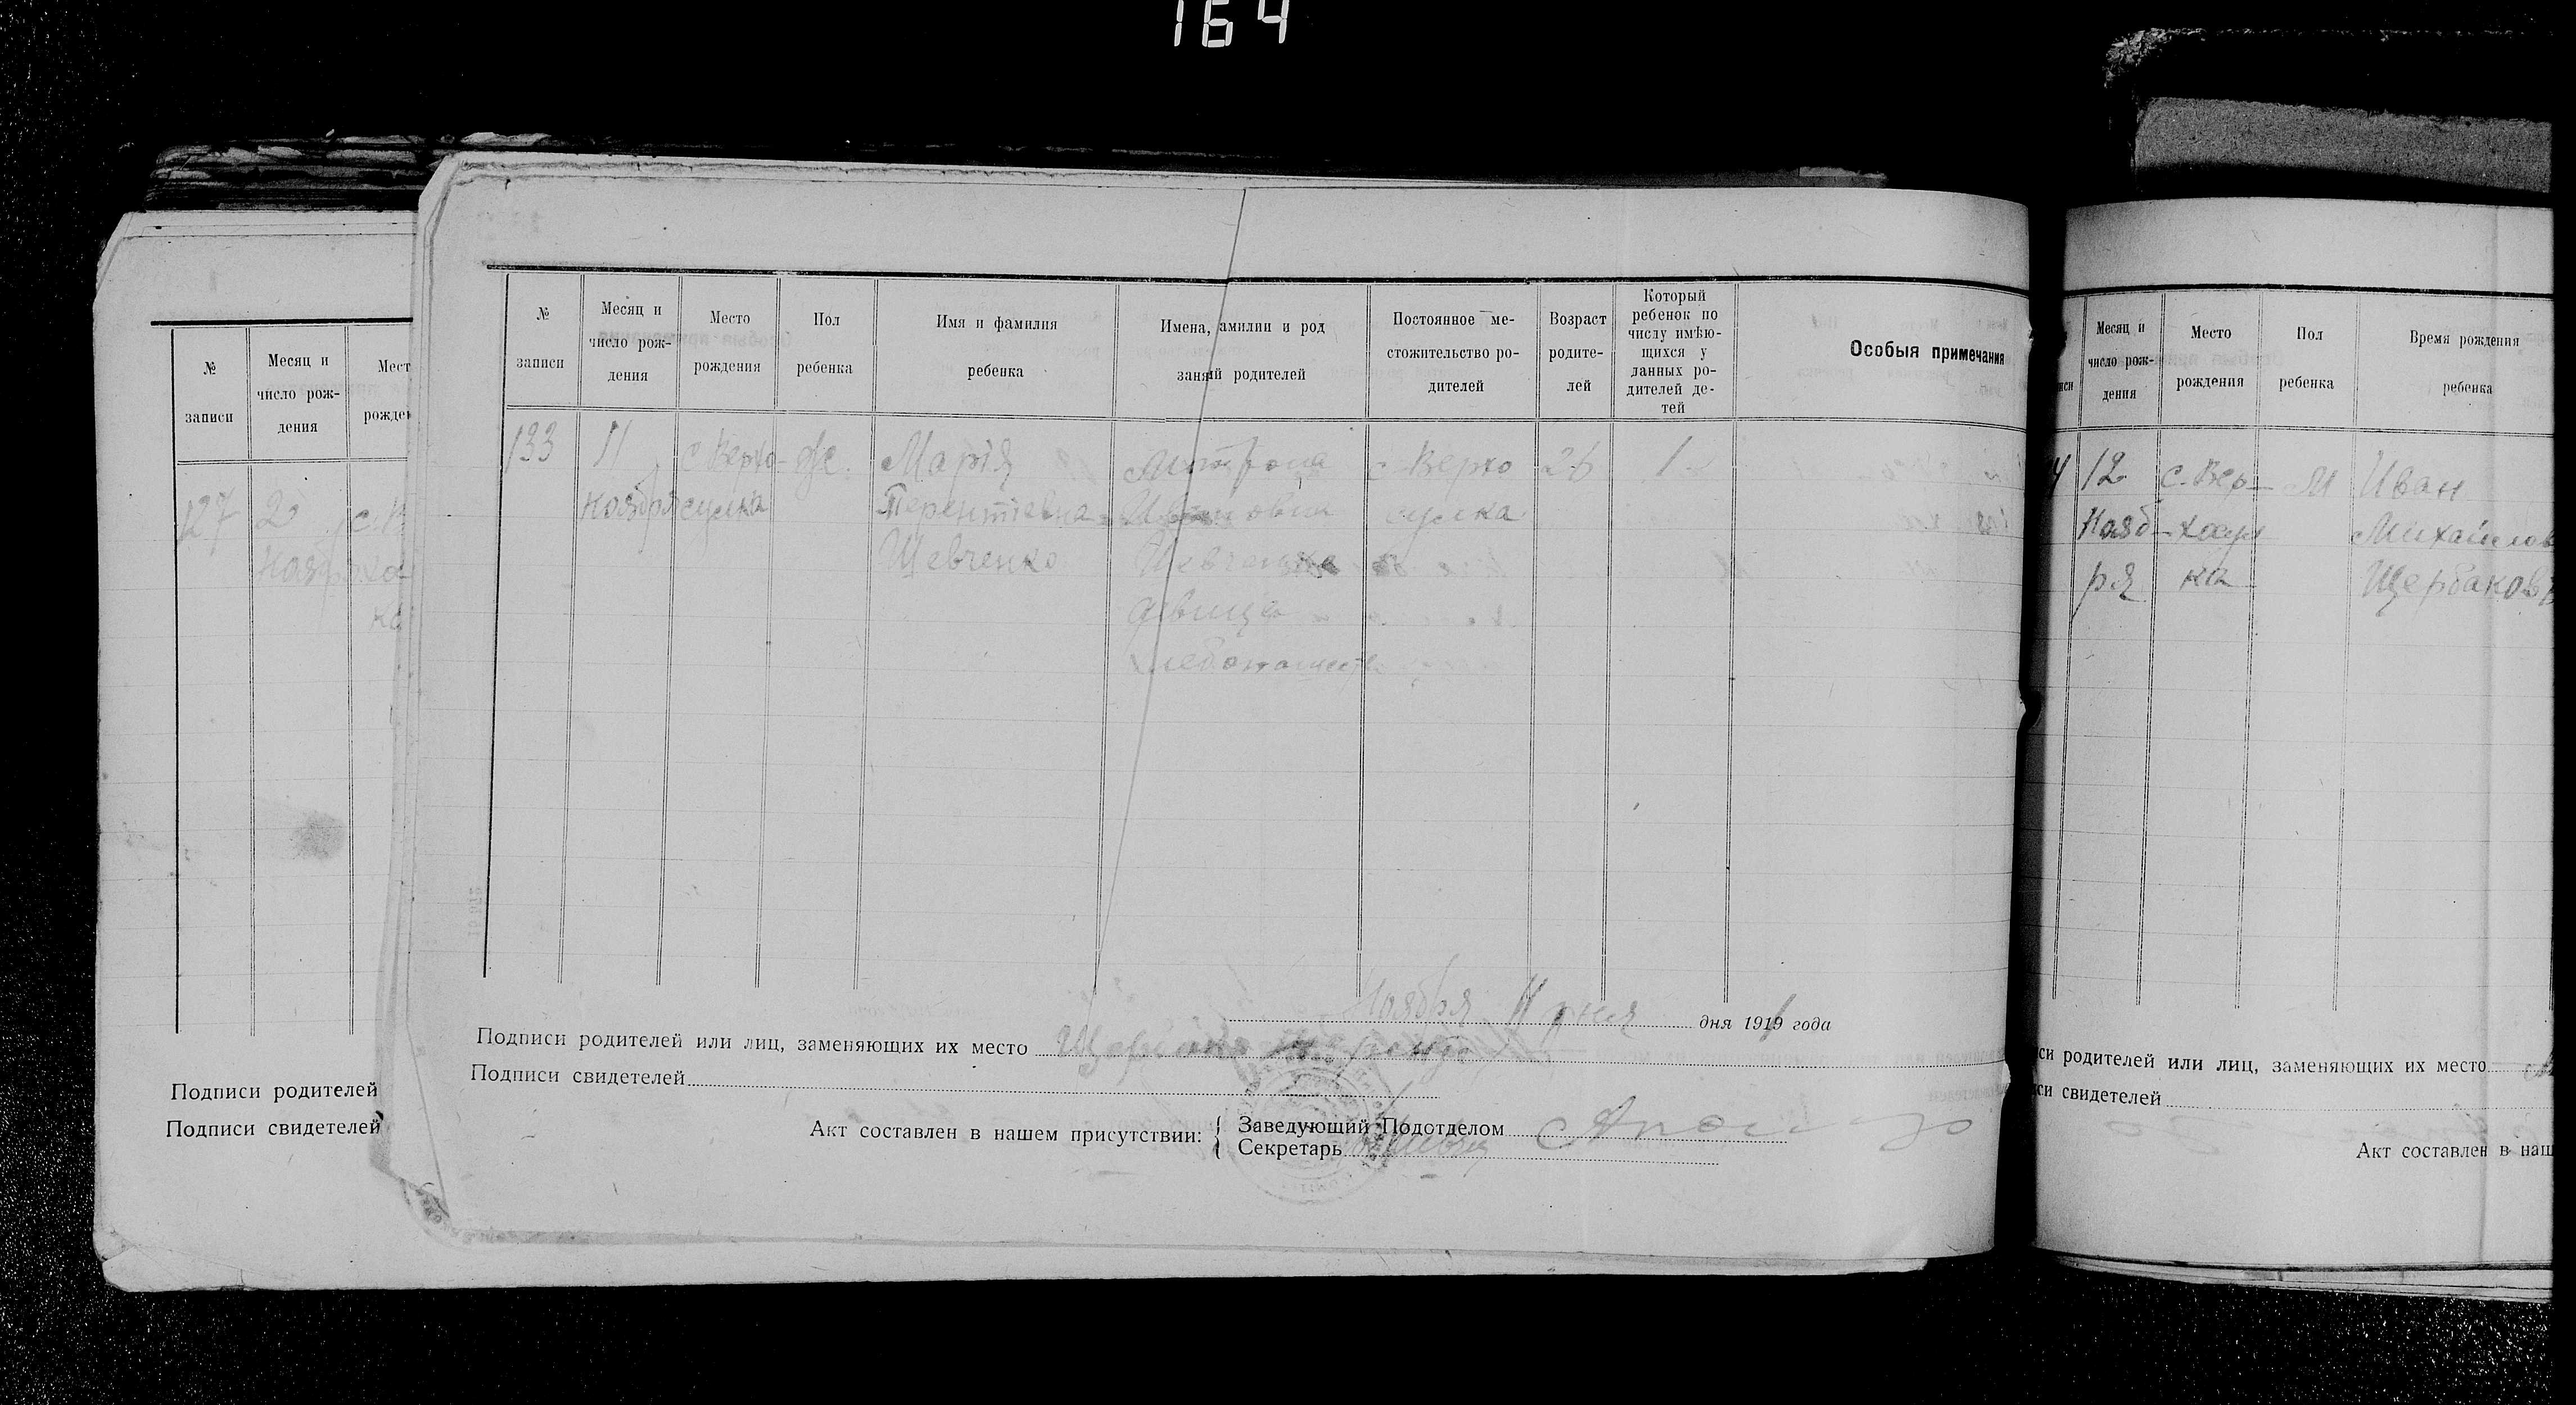 164
№ записи
Месяц и число рож-дения
Мест рожден
127
2
с. В
Нояб
ха
ка
Подписи родителей
Подписи свидетелей
№ записи
Месяц и число рож-дения
Место рождения
Пол ребенка
Имя и фамилия ребенка
Имена, амилии и род заня й родителей
Постоянное ме-стожительство ро-дителей
Возраст родите-лей
Который ребенок по числу имѣю-щихся у данных ро-дителей де-тей
Особыя примечания
133
11 ноября
с Верхо-сулка
ж.
Марія
Терентіевна
Шевченко
Ивановна
Шевченко
девица
с Верхо
сулка
26
1
Ноября 11 дня дня 1919 года
Подписи родителей или лиц, заменяющих их место
Подписи свидетелей
Акт составлен в нашем присутствии:
Заведующий Подотделом
Секретарь
Месяц и число рож-дения
Место рождения
Пол ребенка
Время рождения ребенка
12
Нояб-
ря
с. Вер-
хосул
ка
М
Иван
Михайлов
Щербаков
си родителей или лиц, заменяющих их место
си свидетелей
Акт составлен в наш